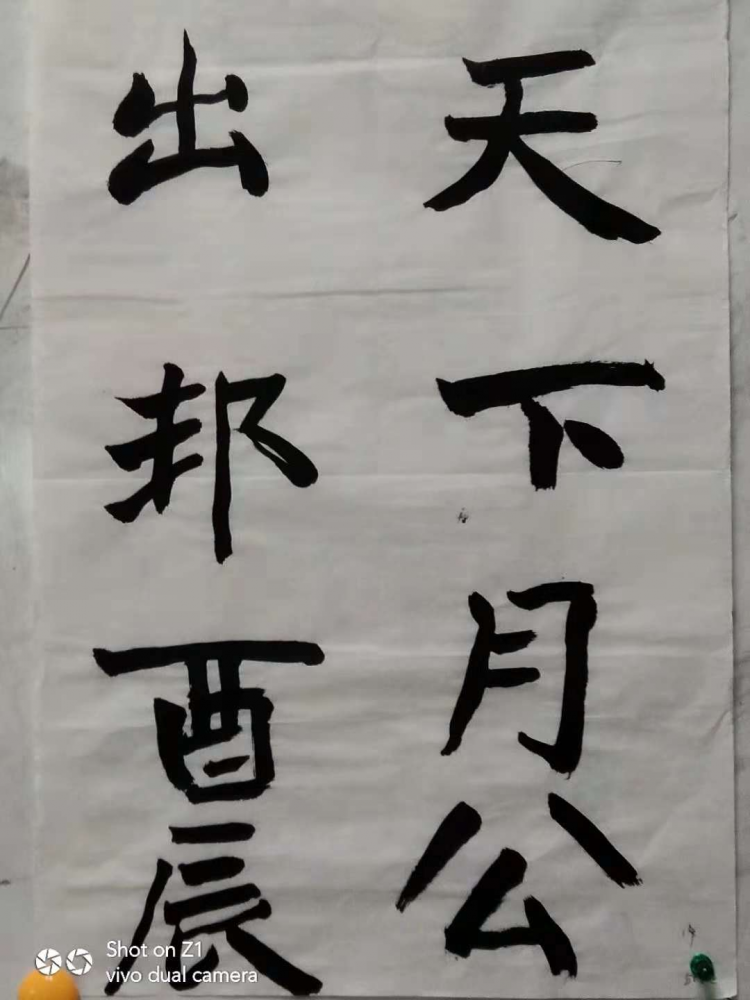 天下月公
出邦酉辰
14
Shot on Z1
vivo dual camera